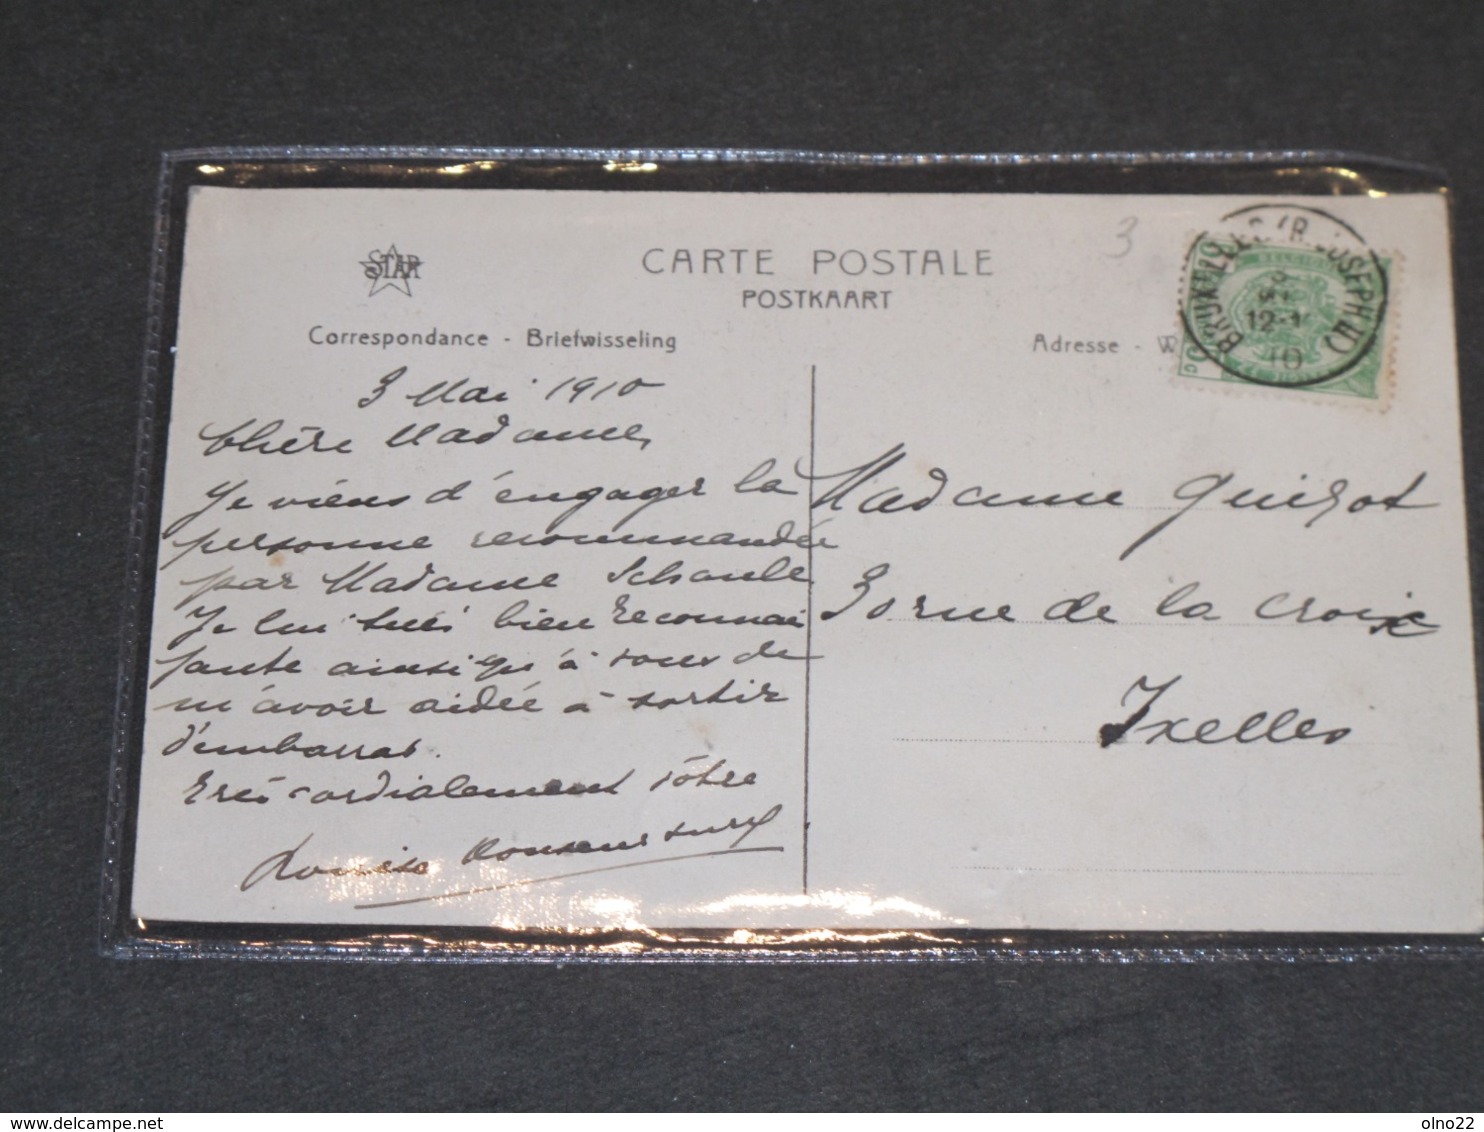 STAR
CARTE POSTALE
POSTKAART
3
Correspondance - Briefwisseling
Adresse - W
BRUXELLES (R. JOSEPH II)
12-1
10
3 Mai 1910
Chère Madame,
Je viens d'engager la
personne recommandée
par Madame
Je lui suis bien reconnai
sante ainsi qu'à vous de
m'avoir aidée à sortir
d'embarras.
Très cordialement vôtre
Louise
Madame Guizot
30 rue de la Croix
Ixelles
olno22